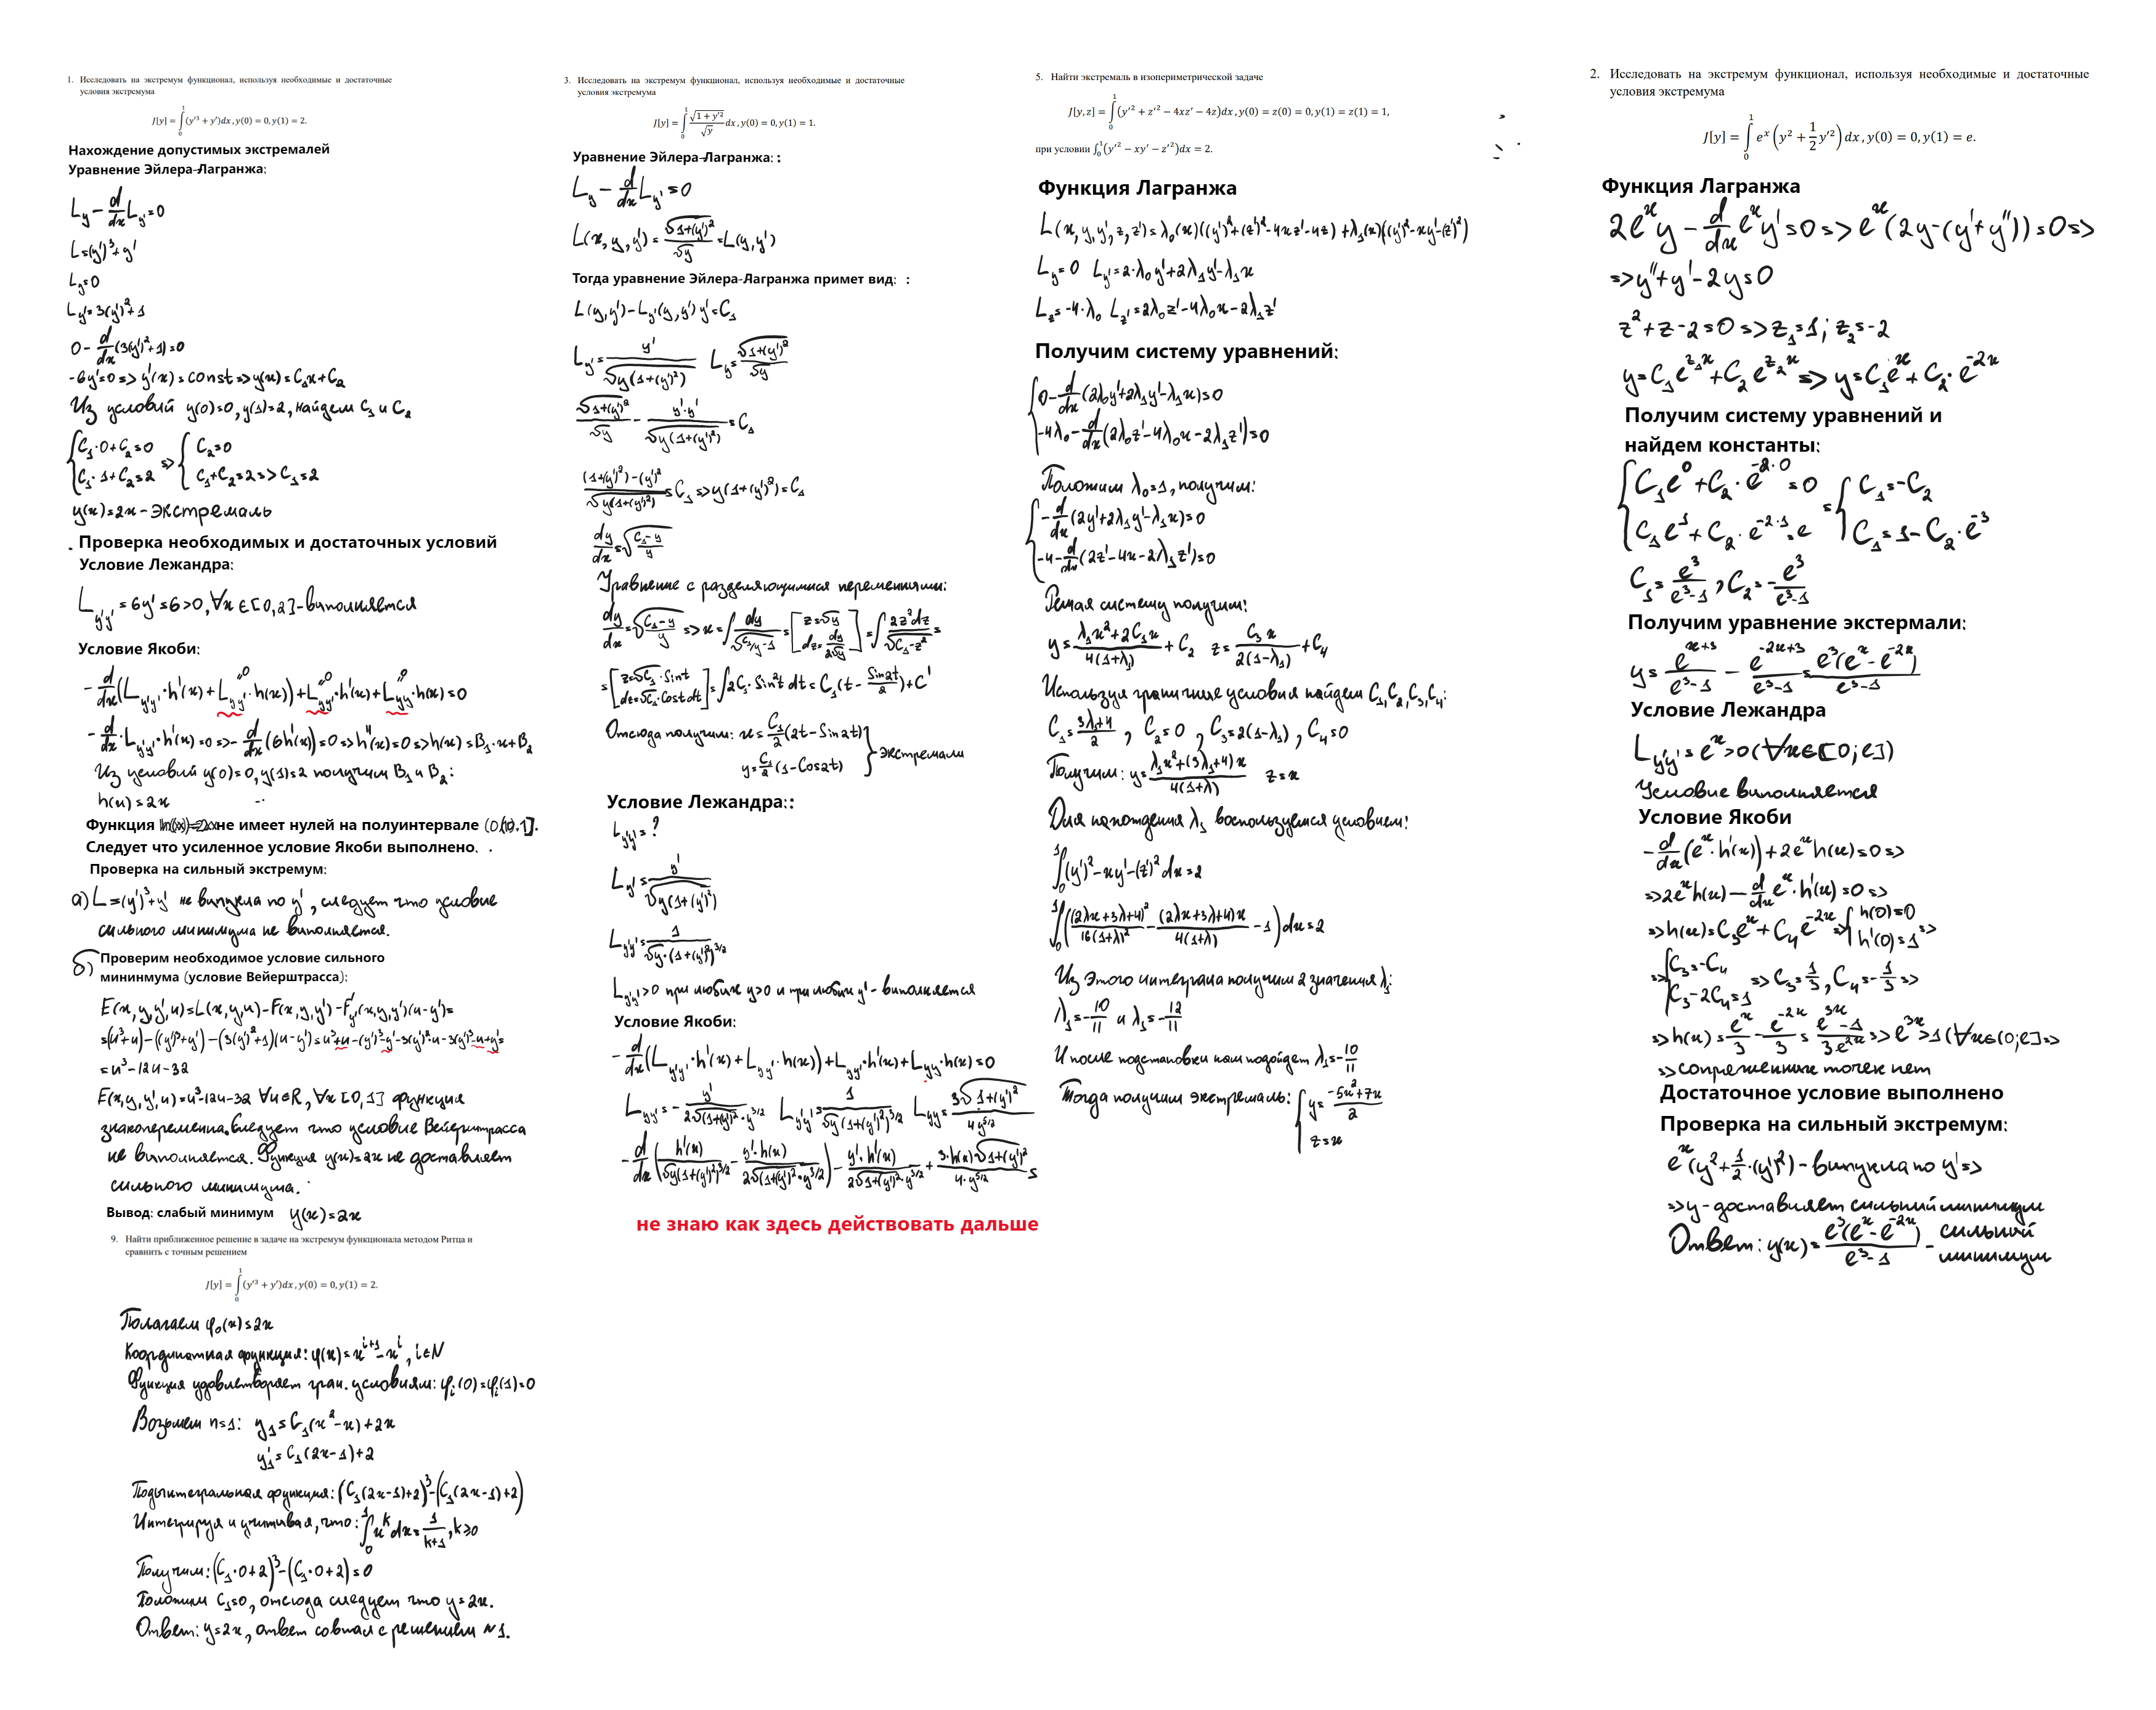 1. Исследовать на экстремум функционал, используя необходимые и достаточные
условия экстремума
J[y] = ∫₀¹ (y′³ + y′)dx , y(0) = 0, y(1) = 2.
Нахождение допустимых экстремалей
Уравнение Эйлера-Лагранжа:
L_y − d/dx L_y' = 0
L = (y')³ + y'
L_y = 0
L_y' = 3(y')² + 1
0 − d/dx (3(y')² + 1) = 0
-6y' = 0 => y'(x) = const => y(x) = C₁x + C₂
Из условий y(0)=0, y(1)=2, найдем C₁ и C₂
{C₁·0 + C₂ = 0 => {C₂ = 0
{C₁·1 + C₂ = 2 {C₁ + C₂ = 2 => C₁ = 2
y(x) = 2x - экстремаль
Проверка необходимых и достаточных условий
Условие Лежандра:
L_y'y' = 6y' = 6 > 0, ∀x ∈ [0,2] - выполняется
Условие Якоби:
− d/dx (L_y'y'·h'(x) + L_yy'·h(x)) + L_yy'·h'(x) + L_yy·h(x) = 0
− d/dx · L_y'y'·h'(x) = 0 => − d/dx (6h'(x)) = 0 => h''(x) = 0 => h(x) = B₁·x + B₂
Из условий y(0)=0, y(1)=2 получим B₁ и B₂:
h(x) = 2x
Функция не имеет нулей на полуинтервале (0,1].
Следует что усиленное условие Якоби выполнено.
Проверка на сильный экстремум:
а) L = (y')³ + y' не выпукла по y', следует что условие
сильного минимума не выполняется.
б) Проверим необходимое условие сильного
мининмума (условие Вейерштрасса):
E(x,y,y',u) = L(x,y,u) − F(x,y,y') − F_y'(x,y,y')(u−y') =
= (u³+u) − ((y')³+y') − (3(y')²+1)(u−y') = u³+u−(y')³−y'−3(y')²·u−3(y')³−u+y' =
= u³−12u−32
E(x,y,y',u) = u³−12u−32 ∀u∈R, ∀x [0,1] функция
знакопеременна. Следует что условие Вейерштрасса
не выполняется. Функция y(x)=2x не доставляет
сильного минимума.
Вывод: слабый минимум y(x)=2x
9. Найти приближенное решение в задаче на экстремум функционала методом Ритца и
сравнить с точным решением
J[y] = ∫₀¹ (y′³ + y′)dx , y(0) = 0, y(1) = 2.
Полагаем φ₀(x) = 2x
Координатная функция: φ(x) = x^(i+1) − x^i, i∈N
Функция удовлетворяет гран. условиям: φᵢ(0) = φᵢ(1) = 0
Возьмем n=1: y₁ = C₁(x²−x) + 2x
y₁' = C₁(2x−1) + 2
Подынтегральная функция: (C₁(2x−1)+2)³ − (C₁(2x−1)+2)
Интегрируя и учитывая, что: ∫₀¹ x^k dx = 1/(k+1), k≥0
Получим: (C₁·0+2)³ − (C₁·0+2) = 0
Положим C₁=0, отсюда следует что y=2x.
Ответ: y=2x, ответ совпал с решением №1.
3. Исследовать на экстремум функционал, используя необходимые и достаточные
условия экстремума
J[y] = ∫₀¹ √(1 + y′²)/√y dx , y(0) = 0, y(1) = 1.
Уравнение Эйлера-Лагранжа: :
L_y − d/dx L_y' = 0
L(x,y,y') = √(1+(y')²)/√y = L(y,y')
Тогда уравнение Эйлера-Лагранжа примет вид: :
L(y,y') − L_y'(y,y')y' = C₁
L_y' = y'/√(y(1+(y')²)) L_y = √(1+(y')²)/√y
√(1+(y')²)/√y − y'·y'/√(y(1+(y')²)) = C₁
((1+(y')²)−(y')²)/√(y(1+(y')²)) = C₁ => y(1+(y')²) = C₁
dy/dx = √((C₁−y)/y)
Уравнение с разделяющимися переменными:
dy/dx = √((C₁−y)/y) => x = ∫ dy/√(C₁/y−1) = [z=√y, dz=dy/(2√y)] = ∫ 2z²dz/√(C₁−z²) =
= [z=√C₁·Sint, dz=√C₁·Cost dt] = ∫2C₁·Sin²t dt = C₁(t − Sin2t/2) + C'
Отсюда получим: x = C₁/2 (2t−Sin2t) } экстремали
y = C₁/2 (1−Cos2t)
Условие Лежандра: :
L_y'y' = ?
L_y' = y'/√(y(1+(y')²))
L_y'y' = 1/(√y·(1+(y')²)^(3/2))
L_y'y' > 0 при любых y>0 и при любых y' - выполняется
Условие Якоби:
− d/dx (L_y'y'·h'(x) + L_yy'·h(x)) + L_yy'·h'(x) + L_yy·h(x) = 0
L_yy' = − y'/(2√(1+(y')²)·y^(3/2)) L_y'y' = 1/(√y(1+(y')²)^(3/2)) L_yy = 3√(1+(y')²)/(4y^(5/2))
− d/dx (h'(x)/(√y(1+(y')²)^(3/2)) − y'·h(x)/(2√(1+(y')²)·y^(3/2))) − y'·h'(x)/(2√(1+(y')²)·y^(3/2)) + 3·h(x)√(1+(y')²)/(4·y^(5/2)) =
не знаю как здесь действовать дальше
5. Найти экстремаль в изопериметрической задаче
J[y, z] = ∫₀¹ (y′² + z′² − 4xz′ − 4z)dx , y(0) = z(0) = 0, y(1) = z(1) = 1,
при условии ∫₀¹(y′² − xy′ − z′²)dx = 2.
Функция Лагранжа
L(x,y,y',z,z') = λ₀(x)((y')²+(z')²−4xz'−4z) + λ₁(x)((y')²−xy'−(z')²)
L_y = 0 L_y' = 2·λ₀y' + 2λ₁y' − λ₁x
L_z = −4·λ₀ L_z' = 2λ₀z' − 4λ₀x − 2λ₁z'
Получим систему уравнений:
{0 − d/dx (2λ₀y'+2λ₁y'−λ₁x) = 0
{−4λ₀ − d/dx (2λ₀z'−4λ₀x−2λ₁z') = 0
Положим λ₀=1, получим:
{− d/dx (2y'+2λ₁y'−λ₁x) = 0
{−4 − d/dx (2z'−4x−2λ₁z') = 0
Решая систему получим:
y = (λ₁x²+2C₁x)/(4(1+λ₁)) + C₂ z = C₃x/(2(1−λ₁)) + C₄
Используя граничные условия найдем C₁, C₂, C₃, C₄:
C₁ = (3λ₁+4)/2 , C₂ = 0 , C₃ = 2(1−λ₁) , C₄ = 0
Получим: y = (λ₁x²+(3λ₁+4)x)/(4(1+λ)) z = x
Для нахождения λ₁ воспользуемся условием:
∫₀¹ (y')²−xy'−(z')² dx = 2
∫₀¹ ((2λx+3λ+4)²/(16(1+λ)²) − (2λx+3λ+4)x/(4(1+λ)) − 1) dx = 2
Из этого интеграла получим 2 значения λ₁:
λ₁ = −10/11 и λ₁ = −12/11
И после подстановки нам подойдет λ₁ = −10/11
Тогда получим экстремаль: {y = (−5x²+7x)/2
{z = x
2. Исследовать на экстремум функционал, используя необходимые и достаточные
условия экстремума
J[y] = ∫₀¹ eˣ (y² + ½y′²) dx , y(0) = 0, y(1) = e.
Функция Лагранжа
2eˣy − d/dx eˣy' = 0 => eˣ(2y−(y'+y'')) = 0 =>
=> y''+y'−2y = 0
z²+z−2 = 0 => z₁=1; z₂=−2
y = C₁e^(z₁x) + C₂e^(z₂x) => y = C₁eˣ + C₂·e^(−2x)
Получим систему уравнений и
найдем константы:
{C₁e⁰ + C₂·e^(−2·0) = 0 = {C₁ = −C₂
{C₁e¹ + C₂·e^(−2·1) = e {C₁ = 1−C₂·e⁻³
C₁ = e³/(e³−1) , C₂ = − e³/(e³−1)
Получим уравнение экстермали:
y = e^(x+3)/(e³−1) − e^(−2x+3)/(e³−1) = e³(eˣ−e^(−2x))/(e³−1)
Условие Лежандра
L_y'y' = eˣ > 0 (∀x∈[0;e])
Условие выполняется
Условие Якоби
− d/dx (eˣ·h'(x)) + 2eˣh(x) = 0 =>
=> 2eˣh(x) − d/dx eˣ·h'(x) = 0 =>
=> h(x) = C₃eˣ + C₄e^(−2x) => {h(0)=0 {h'(0)=1 =>
=> {C₃=−C₄ {C₃−2C₄=1 => C₃ = 1/3, C₄ = −1/3 =>
=> h(x) = eˣ/3 − e^(−2x)/3 = (e^(3x)−1)/(3e^(2x)) => e^(3x) > 1 (∀x∈(0;e] =>
=> сопряженных точек нет
Достаточное условие выполнено
Проверка на сильный экстремум:
eˣ(y²+½·(y')²) - выпукла по y' =>
=> y - доставляет сильный минимум
Ответ: y(x) = e³(eˣ−e^(−2x))/(e³−1) - сильный
минимум